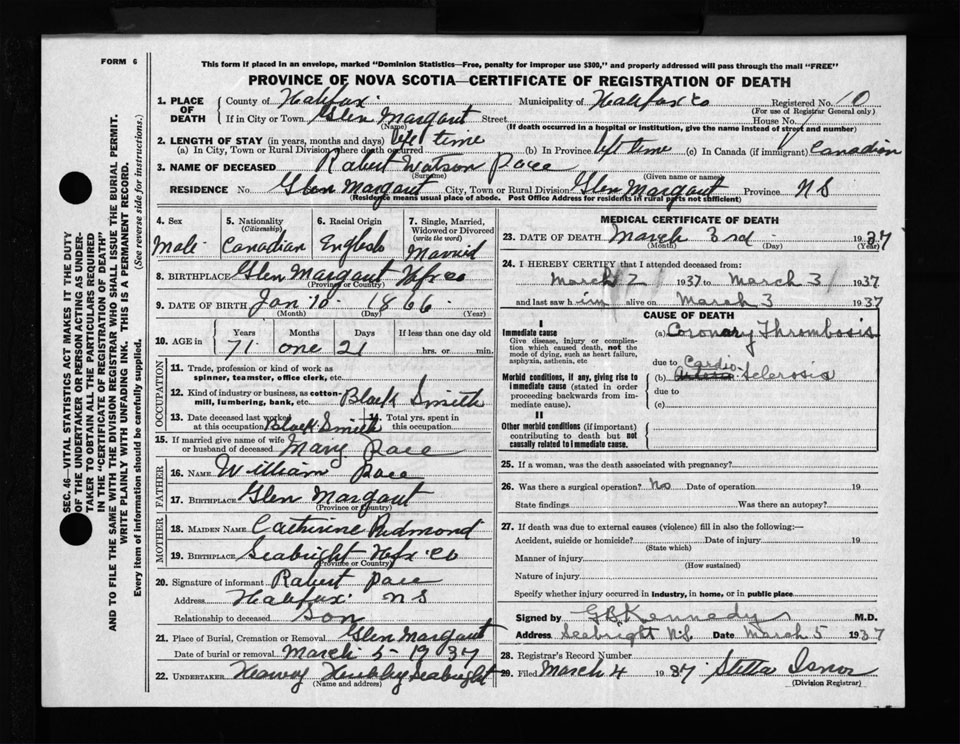 FORM 6
This form if placed in an envelope, marked "Dominion Statistics—Free, penalty for improper use $300," and properly addressed will pass through the mail "FREE"
PROVINCE OF NOVA SCOTIA—CERTIFICATE OF REGISTRATION OF DEATH
1. PLACE OF DEATH County of Halifax Municipality of Halifax Co Registered No. 10
(For use of Registrar General only)
If in City or Town Glen Margaut Street House No.
(Name) (If death occurred in a hospital or institution, give the name instead of street and number)
2. LENGTH OF STAY (in years, months and days) life time
(a) In City, Town or Rural Division where death occurred (b) In Province life time (c) In Canada (if immigrant) Canadian
3. NAME OF DECEASED Robert Watson Pace
(Surname) (Given name or names)
RESIDENCE No. Glen Margaut City, Town or Rural Division Glen Margaut Province N S
(Residence means usual place of abode. Post Office Address for residents in rural parts not sufficient)
4. Sex Male
5. Nationality (Citizenship) Canadian
6. Racial Origin English
7. Single, Married, Widowed or Divorced (write the word) Married
8. BIRTHPLACE Glen Margaut Hfx Co
(Province or Country)
9. DATE OF BIRTH Jan 10 1866
(Month) (Day) (Year)
10. AGE in Years Months Days If less than one day old
71 one 21 hrs. or min.
OCCUPATION
11. Trade, profession or kind of work as spinner, teamster, office clerk, etc.
12. Kind of industry or business, as cotton-mill, lumbering, bank, etc. Black Smith
13. Date deceased last worked at this occupation Black Smith 14. Total yrs. spent in this occupation
15. If married give name of wife or husband of deceased Mary Pace
FATHER
16. NAME William Pace
17. BIRTHPLACE Glen Margaut
(Province or Country)
MOTHER
18. MAIDEN NAME Catherine Redmond
19. BIRTHPLACE Seabright Hfx Co
(Province or Country)
20. Signature of informant Robert Pace
Address Halifax N S
Relationship to deceased Son
21. Place of Burial, Cremation or Removal Glen Margaut
Date of burial or removal March 5 1937
22. UNDERTAKER Seabright
(Name and address)
MEDICAL CERTIFICATE OF DEATH
23. DATE OF DEATH March 3rd 1937
(Month) (Day) (Year)
24. I HEREBY CERTIFY that I attended deceased from:
March 2 1937 to March 3 1937
and last saw him alive on March 3 1937
CAUSE OF DEATH
I
Immediate cause
Give disease, injury or complication which caused death, not the mode of dying, such as heart failure, asphyxia, asthenia, etc
(a) Coronary Thrombosis
due to
Morbid conditions, if any, giving rise to immediate cause (stated in order proceeding backwards from immediate cause).
(b) Cardio-Sclerosis
due to
(c)
II
Other morbid conditions (if important) contributing to death but not causally related to immediate cause.
25. If a woman, was the death associated with pregnancy?
26. Was there a surgical operation? No Date of operation 19
State findings Was there an autopsy?
27. If death was due to external causes (violence) fill in also the following:—
Accident, suicide or homicide? Date of injury 19
(State which)
Manner of injury
(How sustained)
Nature of injury
Specify whether injury occurred in industry, in home, or in public place
Signed by G B Kennedy M.D.
Address Seabright N.S. Date March 5 1937
28. Registrar's Record Number
29. Filed March 4 1937 Stella
(Division Registrar)
SEC. 46—VITAL STATISTICS ACT MAKES IT THE DUTY
OF THE UNDERTAKER OR PERSON ACTING AS UNDER-
TAKER TO OBTAIN ALL THE PARTICULARS REQUIRED
IN THE "CERTIFICATE OF REGISTRATION OF DEATH"
AND TO FILE THE SAME WITH THE DIVISION REGISTRAR WHO SHALL ISSUE THE BURIAL PERMIT.
WRITE PLAINLY WITH UNFADING INK. THIS IS A PERMANENT RECORD.
Every item of information should be carefully supplied. (See reverse side for instructions.)